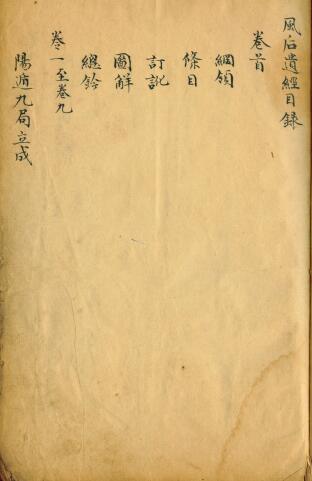 風后遺經目録
卷首
綱領
條目
訂訛
圖解
總鈐
卷一至卷九
陽遁九局立成